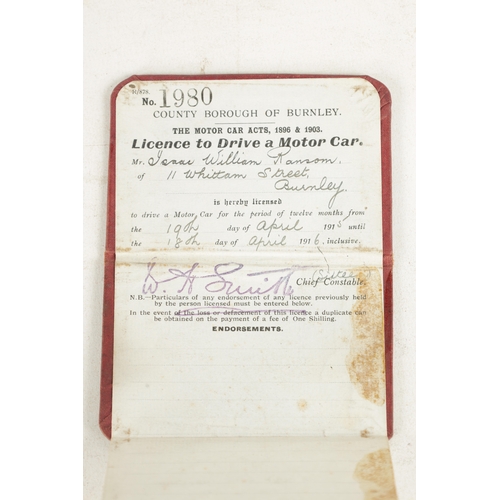 No. 1980
COUNTY BOROUGH OF BURNLEY.
THE MOTOR CAR ACTS, 1896 & 1903.
Licence to Drive a Motor Car.
Mr. Isaac William Ransom.
of 11 Whittam Street,
Burnley.
is hereby licensed
to drive a Motor Car for the period of twelve months from
the 19th day of April 1915 until
the 18th day of April 1916, inclusive.
W A Smith
Chief Constable.
N.B.—Particulars of any endorsement of any licence previously held
by the person licensed must be entered below.
In the event of the loss or defacement of this licence a duplicate can
be obtained on the payment of a fee of One Shilling.
ENDORSEMENTS.